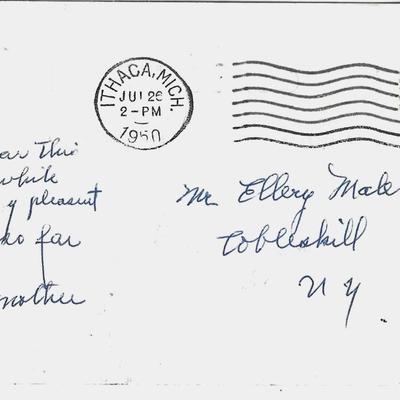 ITHACA, MICH.
JUL 26
2-PM
1950
This
while
y pleasant
so far
mother
Mr Ellery Male
Cobleskill
N Y